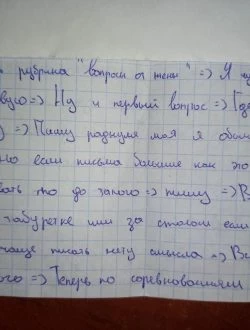 рубрика "вопросы от жены" => Я
=> Ну и первый вопрос => Где
=> Пишу родную моя я обы
но если письма большие как это
вать то до залого => пишу => В
табуретке или за столом если
чаще писать нету смысла => Вс
ого => Теперь по соревнованиям